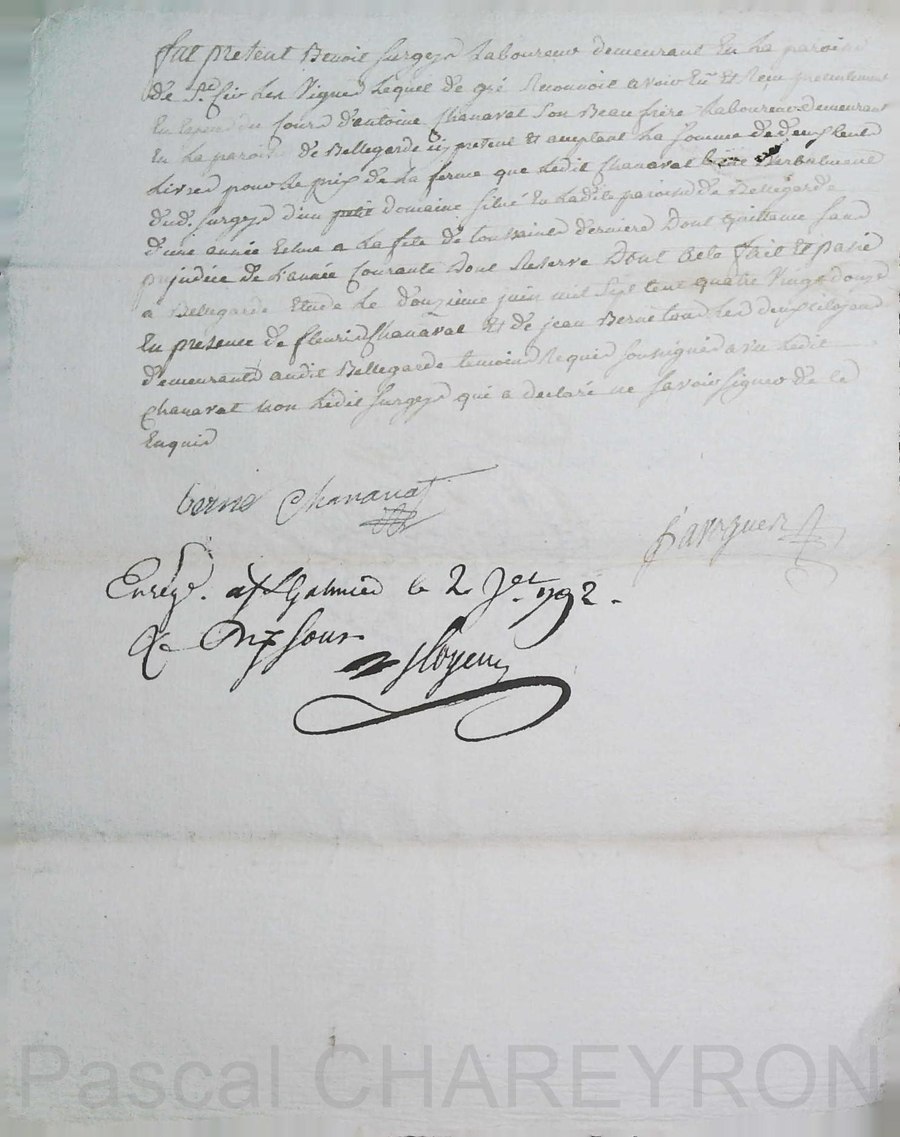 fut present Benoit Surgeys Laboureur demeurant En La paroisse
de St. Cir Les Vignes Lequel de gré Reconnoit avoir Eu et Reçu presentement
En Especes du Cours d'antoine Chanavat Son Beau frère Laboureur demeurant
En La paroisse de Bellegarde icy present et acceptant La Somme de deux Cent
Livres pour Le prix de La ferme que Ledit Chanavat tient Verbalement
dud. Surgeys d'un petit domaine Situé En Ladite paroisse de Bellegarde
d'une année Echue a La fete de toussaints derniere Dont quittance Sans
prejudice de L'année Courante Dont Reserve Dont Acte fait et passé
a Bellegarde Etude Le douzieme juin mil Sept Cent quatre Vingt douze
En presence de fleuri Chanavat et de jean Berne tous Les deux Citoyens
demeurants audit Bellegarde temoins Requis Soussignés avec Ledit
Chanavat non Ledit Surgeys qui a declaré ne Savoir Signer de Ce
Enquis
berne Chanavat
Enregé. a St Galmier le 2 Jet. 1792.
sous
Pascal CHAREYRON